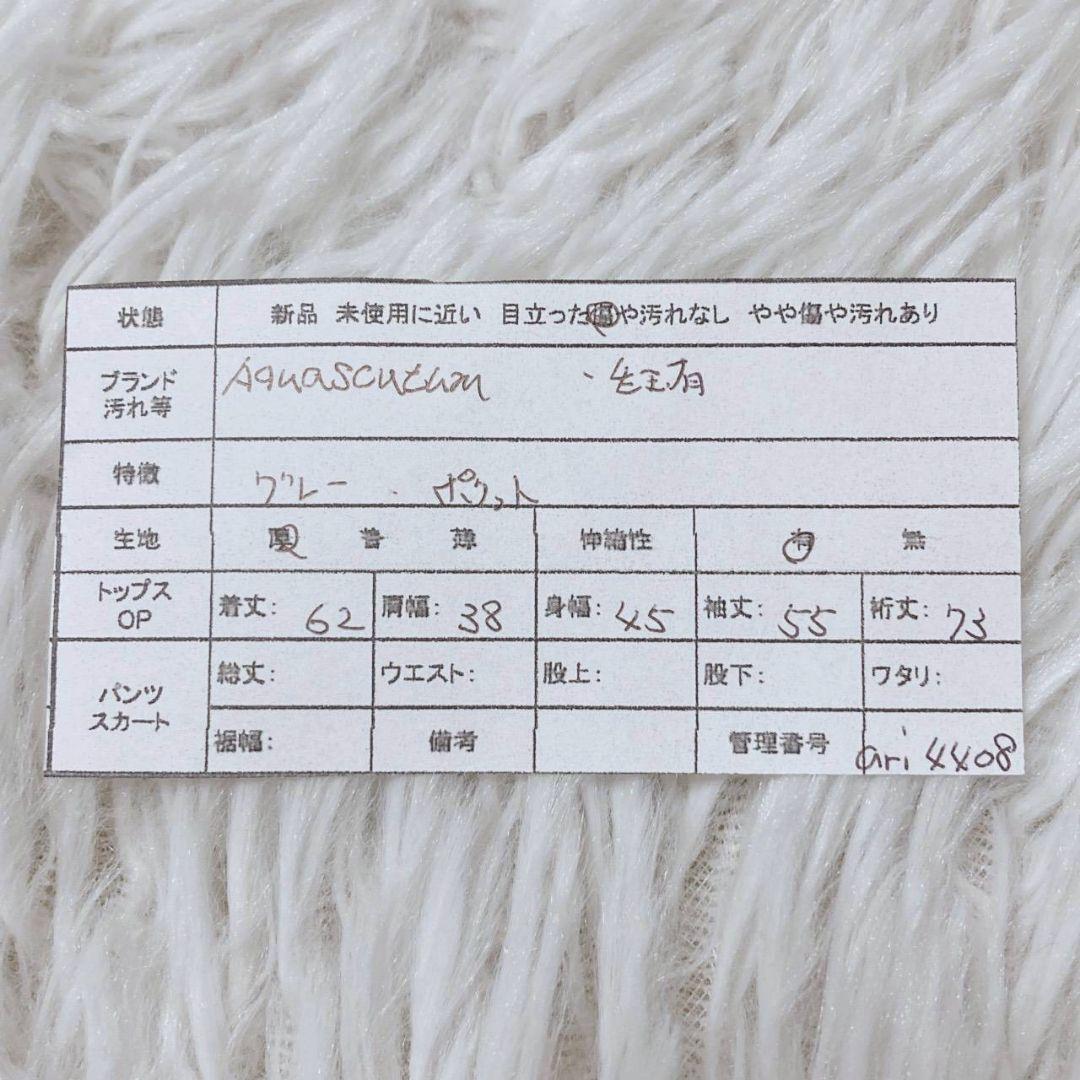 状態 新品 未使用に近い 目立った傷や汚れなし やや傷や汚れあり
ブランド 汚れ等 Aquascutum
特徴 グレー ・ ポケット
生地 厚 普 薄 伸縮性 有 無
トップス OP 着丈: 62 肩幅: 38 身幅: 45 袖丈: 55 裄丈: 73
パンツ スカート 総丈: ウエスト: 股上: 股下: ワタリ:
裾幅: 備考 管理番号 ari 4408